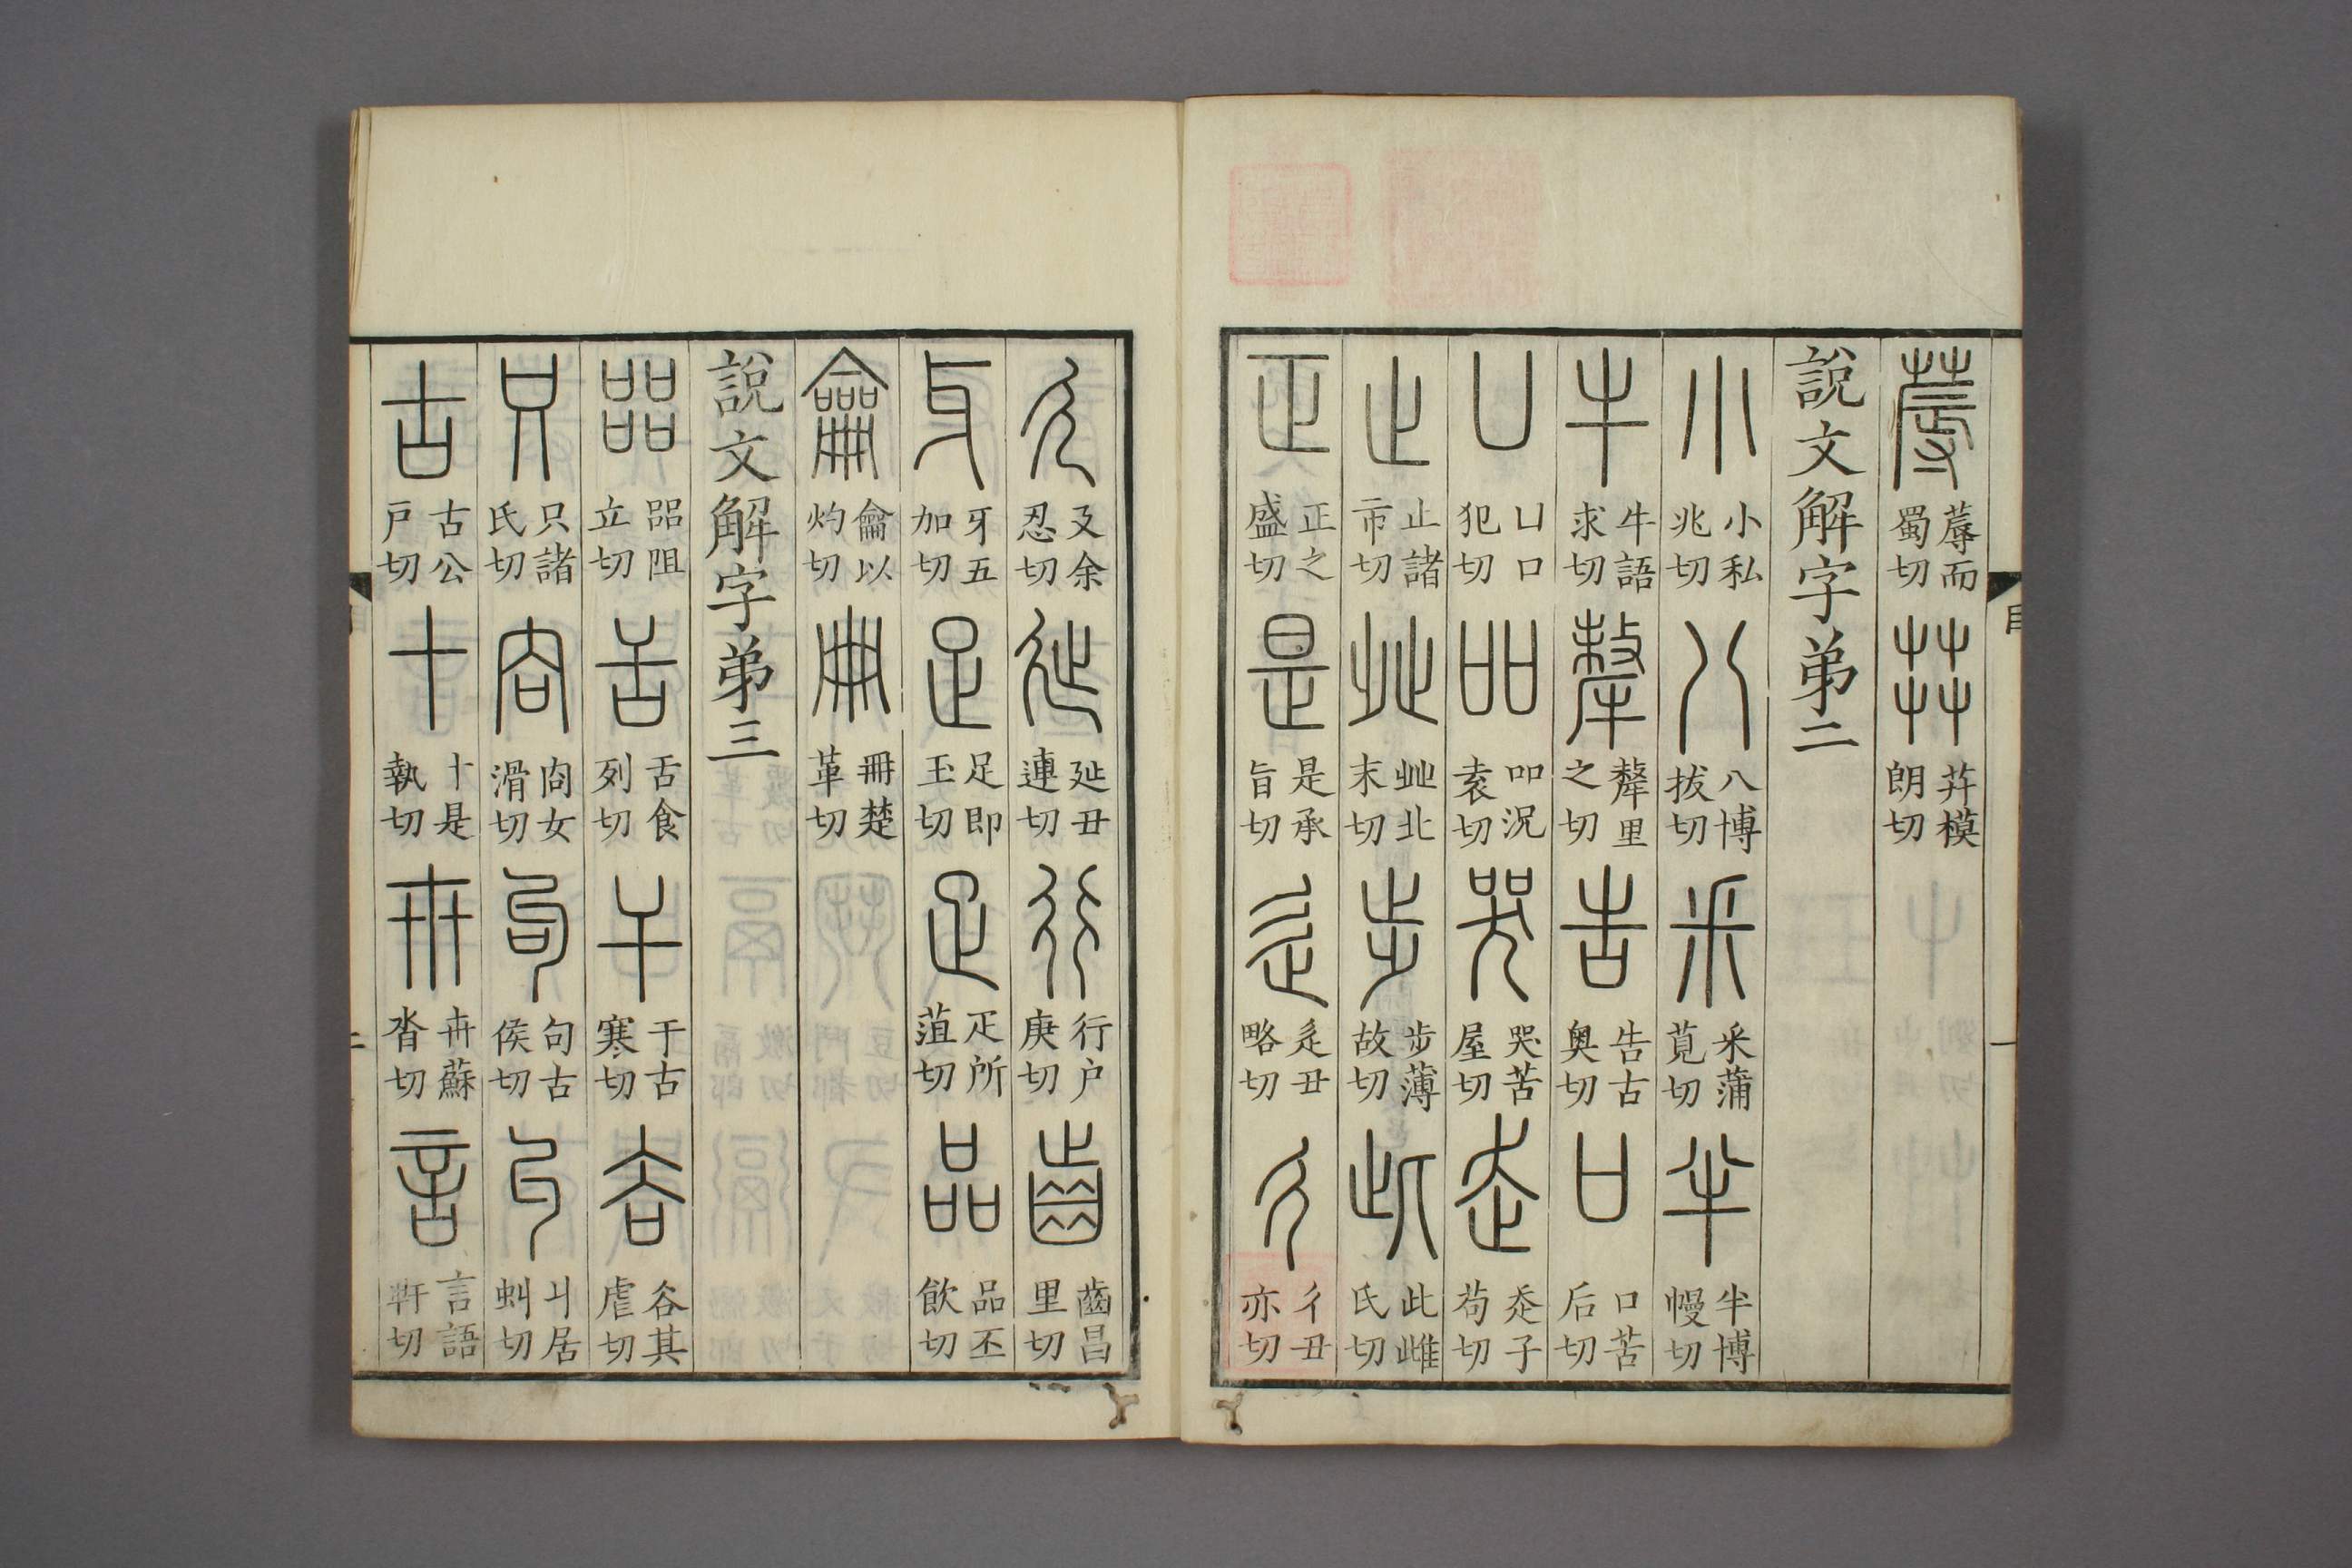 蓐 蓐而蜀切 茻 茻模朗切
說文解字弟二
小 小私兆切 八 八博拔切 釆 釆蒲莧切 半 半博幔切
牛 牛語求切 犛 犛里之切 告 告古奧切 口 口苦后切
凵 凵口犯切 吅 吅況袁切 哭 哭苦屋切 走 走子苟切
止 止諸市切 癶 癶北末切 步 步薄故切 此 此雌氏切
正 正之盛切 是 是承旨切 辵 辵丑略切 彳 彳丑亦切
廴 廴余忍切 㢟 㢟丑連切 行 行户庚切 齒 齒昌里切
牙 牙五加切 足 足即玉切 疋 疋所菹切 品 品丕飲切
龠 龠以灼切 冊 冊楚革切
說文解字弟三
㗊 㗊阻立切 舌 舌食列切 干 干古寒切 谷 谷其虐切
只 只諸氏切 㕯 㕯女滑切 句 句古侯切 丩 丩居虯切
古 古公戸切 十 十是執切 卅 卅蘇沓切 言 言語軒切